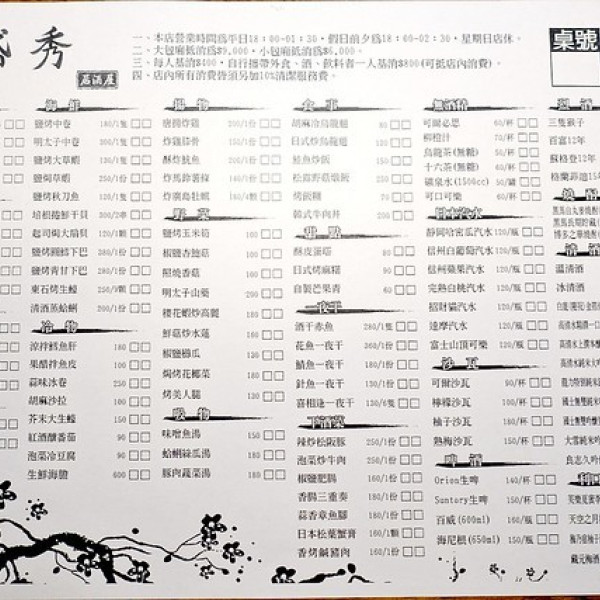 秀
居酒屋
一、本店營業時間為平日18：00-01：30，假日前夕為18：00-02：30，星期日店休。
二、大包廂低消為$9,000，小包廂低消為$6,000。
三、每人基消$400，自行攜帶外食、酒、飲料者一人基消$800(可抵店內消費)。
四、店內所有消費皆須另加10%清潔服務費。
桌號
海鮮
鹽烤中卷 180/1隻
明太子中卷 300/1隻
鹽烤大草蝦 130/1隻
鹽焗草蝦 250/1份
鹽烤秋刀魚 120/1隻
培根捲鮮干貝 300/2串
起司焗大扇貝 120/1顆
鹽烤圓鱈下巴 380/1份
鹽烤青甘下巴
東石烤生蠔 250/9顆
清酒蒸蛤蜊 200/1份
冷物
涼拌鱈魚肝 180
果醋拌魚皮 100
蒜味冰卷 250
胡麻沙拉 100
芥末大生蠔 150
紅酒釀番茄 90
泡菜冷豆腐 90
生鮮海膽 600
揚物
唐揚炸雞 200/1份
炸雞膝骨 150/1份
酥炸魷魚 200/1份
炸馬鈴薯條 140/1份
炸廣島牡蠣 180/4顆
野菜
鹽烤玉米筍 100
椒鹽杏鮑菇 100
照燒香菇 100
明太子山藥 200
櫻花蝦炒高麗 180
鮮菇炒水蓮 160
椒鹽櫛瓜 130
焗烤花椰菜 180
烤美人腿 130
吸物
味噌魚湯 150
蛤蜊絲瓜湯 180
豚肉蔬菜湯 180
食事
胡麻冷烏龍麵 80
日式炒烏龍麵 120
鮭魚炒飯 150
松露野菇燉飯 250
烤飯糰 70
韓式牛肉丼 250
甜點
酥皮蛋塔 80
日式烤麻糬 90
自製芒果青 60
一夜干
酒干赤魚 280/1隻
花魚一夜干 360/1隻
鯖魚一夜干 150/1隻
針魚一夜干 130/1隻
喜相逢一夜干 130/6隻
下酒菜
辣炒松阪豚 250/1份
泡菜炒牛肉 250/1份
椒鹽肥腸 160/1份
香腸三重奏 180/1份
蒜香章魚腳 180/1份
日本松葉蟹膏 160/1顆
香烤鹹豬肉 160/1份
無酒精
可爾必思 60/杯
柳橙汁 70/杯
烏龍茶(無糖) 50/杯
十六茶(無糖) 60/杯
礦泉水(1500cc) 50/罐
可口可樂 60/杯
日本汽水
靜岡哈密瓜汽水 120/瓶
信州白葡萄汽水 120/瓶
信州蘋果汽水 120/瓶
完熟白桃汽水 120/瓶
招財貓汽水 120/瓶
達摩汽水 120/瓶
富士山頂可樂 120/瓶
沙瓦
可爾沙瓦 90/杯
檸檬沙瓦 100/杯
柚子沙瓦 180/杯
熟梅沙瓦 150/杯
啤酒
Orion生啤 140/杯
Suntory生啤 150/杯
百威(600ml) 160/瓶
海尼根(650ml) 150/瓶
烈酒
三隻猴子
百富12年
蘇格登12年
格蘭菲迪15年
燒酎
清酒
溫清酒
冰清酒